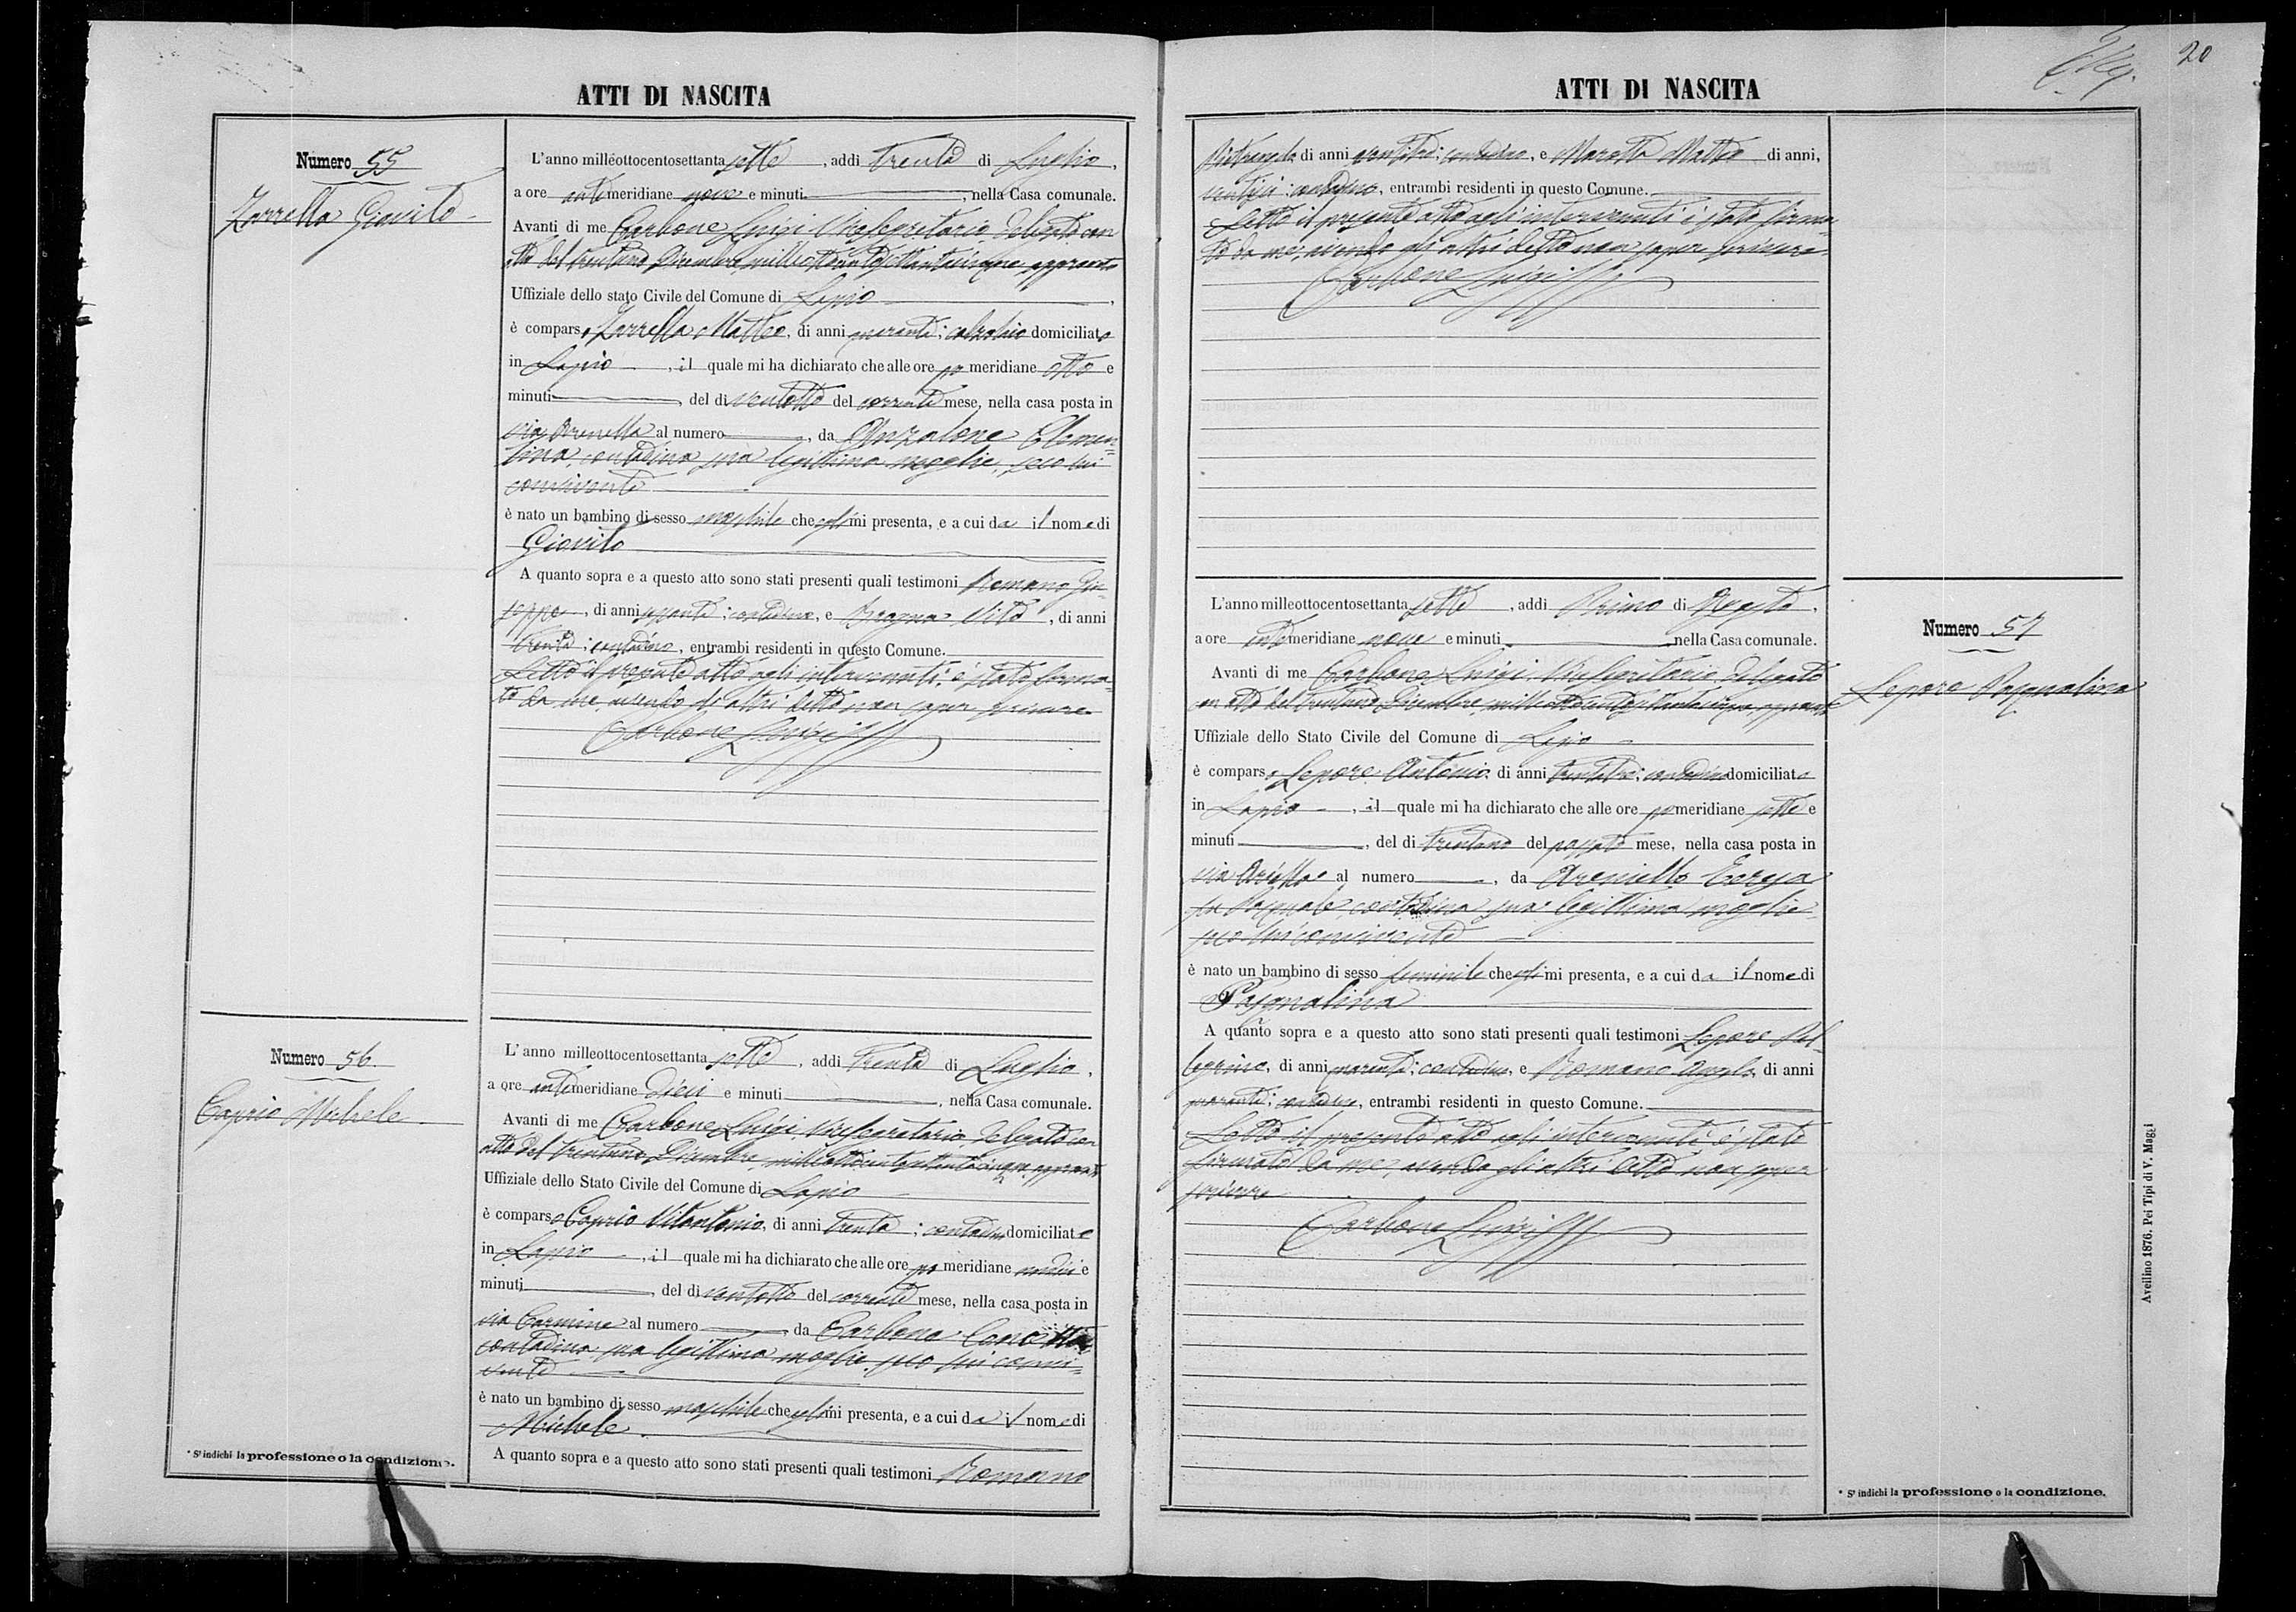 ATTI DI NASCITA
Numero 55
Zarrella Giovito
L'anno milleottocentosettanta sette, addi trenta di Luglio,
a ore antimeridiane nove e minuti, nella Casa comunale.
Avanti di me Carbone Luigi Vicesegretario delegato con
atto del trentuno Dicembre milleottocentosettantacinque, approvato
Uffiziale dello stato Civile del Comune di Lapio
è comparso Zarrella Matteo, di anni quaranta; calzolaio domiciliato
in Lapio, il quale mi ha dichiarato che alle ore pomeridiane otto e
minuti, del di ventotto del corrente mese, nella casa posta in
via al numero, da Anzalone Clemen=
tina, contadina sua legittima moglie, seco lui
convivente
è nato un bambino di sesso maschile che egli mi presenta, e a cui da il nome di
Giovito
A quanto sopra e a questo atto sono stati presenti quali testimoni Romano Giu-
seppe, di anni sessanta; contadino, e Vito, di anni
trenta; contadino, entrambi residenti in questo Comune.
Letto il presente atto agli intervenuti, è stato firma-
to da me, avendo gli altri detto non saper scrivere
Carbone Luigi
Numero 56.
Caprio Michele
L'anno milleottocentosettanta sette, addi trenta di Luglio,
a ore antimeridiane dieci e minuti, nella Casa comunale.
Avanti di me Carbone Luigi, Vicesegretario delegato con
atto del trentuno Dicembre, milleottocentosettantacinque, approvato
Uffiziale dello Stato Civile del Comune di Lapio
è comparso Caprio Vitantonio, di anni trenta; contadino domiciliato
in Lapio, il quale mi ha dichiarato che alle ore pomeridiane undici e
minuti, del di ventotto del corrente mese, nella casa posta in
via Carmine al numero, da Carbone Concetta
contadina sua legittima moglie seco lui convi=
vente
è nato un bambino di sesso maschile che egli mi presenta, e a cui da il nome di
Michele.
A quanto sopra e a questo atto sono stati presenti quali testimoni Romano
* Si indichi la professione o la condizione.
ATTI DI NASCITA
20
di anni; contadino, e Matteo di anni,
contadino, entrambi residenti in questo Comune.
Letto il presente atto agli intervenuti è stato firma-
to da me, avendo gli altri detto non saper scrivere.
Carbone Luigi
L'anno milleottocentosettanta sette, addi Primo di Agosto,
a ore antimeridiane nove e minuti nella Casa comunale.
Avanti di me Carbone Luigi, Vicesegretario delegato
con atto del trentuno Dicembre, milleottocentosettantacinque, approvato
Uffiziale dello Stato Civile del Comune di Lapio
è comparso Lepore Antonio, di anni trentatre; contadino domiciliato
in Lapio, il quale mi ha dichiarato che alle ore pomeridiane sette e
minuti, del di trentuno del passato mese, nella casa posta in
via al numero, da Teresa
fu Pasquale, contadina sua legittima moglie
seco lui convivente
è nato un bambino di sesso feminile che egli mi presenta, e a cui da il nome di
Pasqualina
A quanto sopra e a questo atto sono stati presenti quali testimoni Lepore Pel-
legrino, di anni quaranta; contadino, e Romano Angelo, di anni
quaranta; contadino, entrambi residenti in questo Comune.
Letto il presente atto agli intervenuti è stato
firmato da me, avendo gli altri detto non saper
scrivere
Carbone Luigi
Numero 57
Lepore Pasqualina
* Si indichi la professione o la condizione.
Avellino 1876. Pei Tipi di V. Maggi